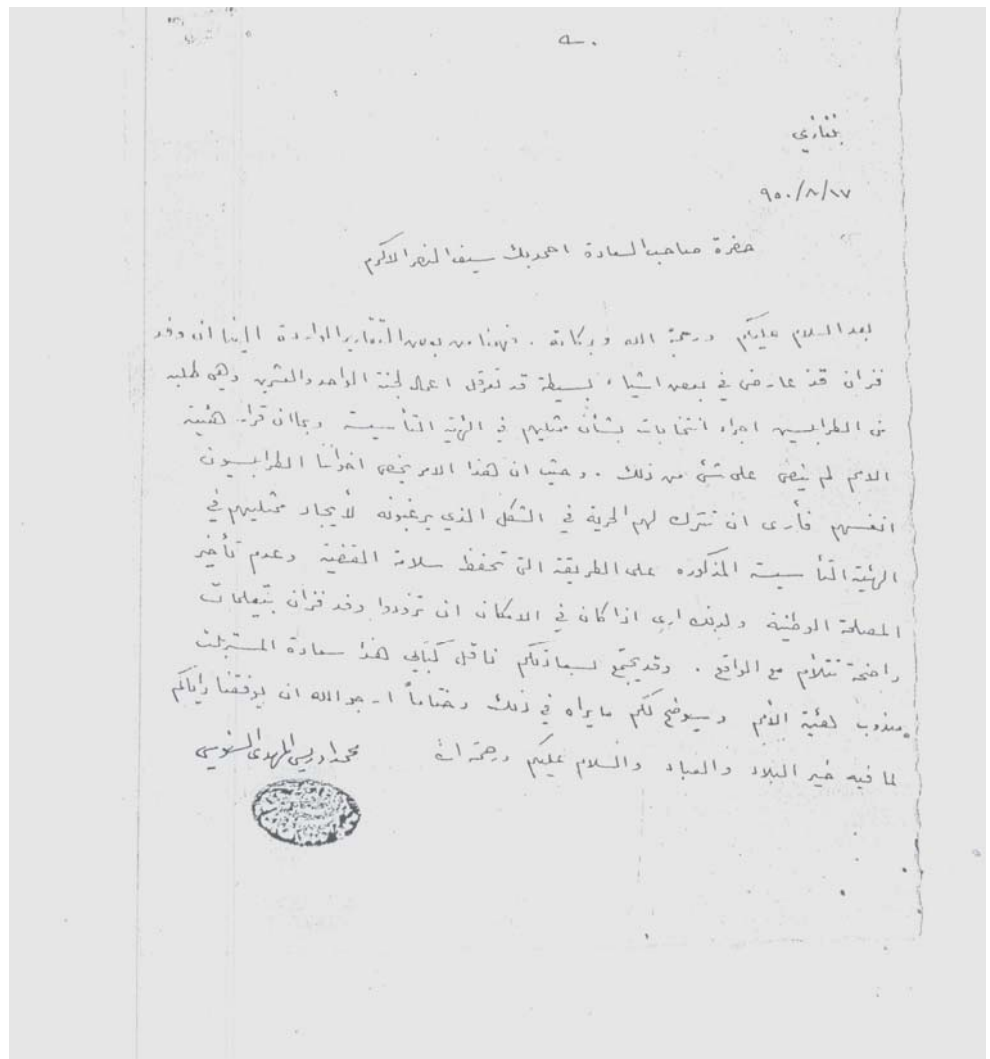 بنغازي
٩٥٠/٨/١٧
حضرة صاحب السعادة احمد بك سيف النصر الاكرم
بعد السلام عليكم ورحمة الله وبركاته . فهمنا من بعض التقارير الواردة الينا ان وفد
فزان قد عارض في بعض اشياء بسيطة قد تعرقل اعمال لجنة الواحد والعشرين وهي طلبه
من الطرابلسيين اجراء انتخابات بشأن ممثليهم في الهيئة التأسيسية وبما ان قرار هيئة
الامم لم ينص على شئ من ذلك . وحيث ان هذا الامر يخص اخواننا الطرابلسيون
انفسهم فأرى ان نترك لهم الحرية في الشكل الذي يرغبونه لأيجاد ممثليهم في
الهيئة التأسيسية المذكوره على الطريقة التى تحفظ سلامة القضية وعدم تأخير
المصلحة الوطنية ولذلك ارى اذا كان في الامكان ان تزودوا وفد فزان بتعليمات
واضحة تتلائم مع الواقع . وقد يجتمع بسعادتكم ناقل كتابي هذا سعادة المستر بلت
مندوب لهيئة الأمم وسيوضح لكم مايراه في ذلك وختاماً ارجو الله ان يوفقنا واياكم
لما فيه خير البلاد والعباد والسلام عليكم ورحمة الله
محمد ادريس المهدى السنوسي